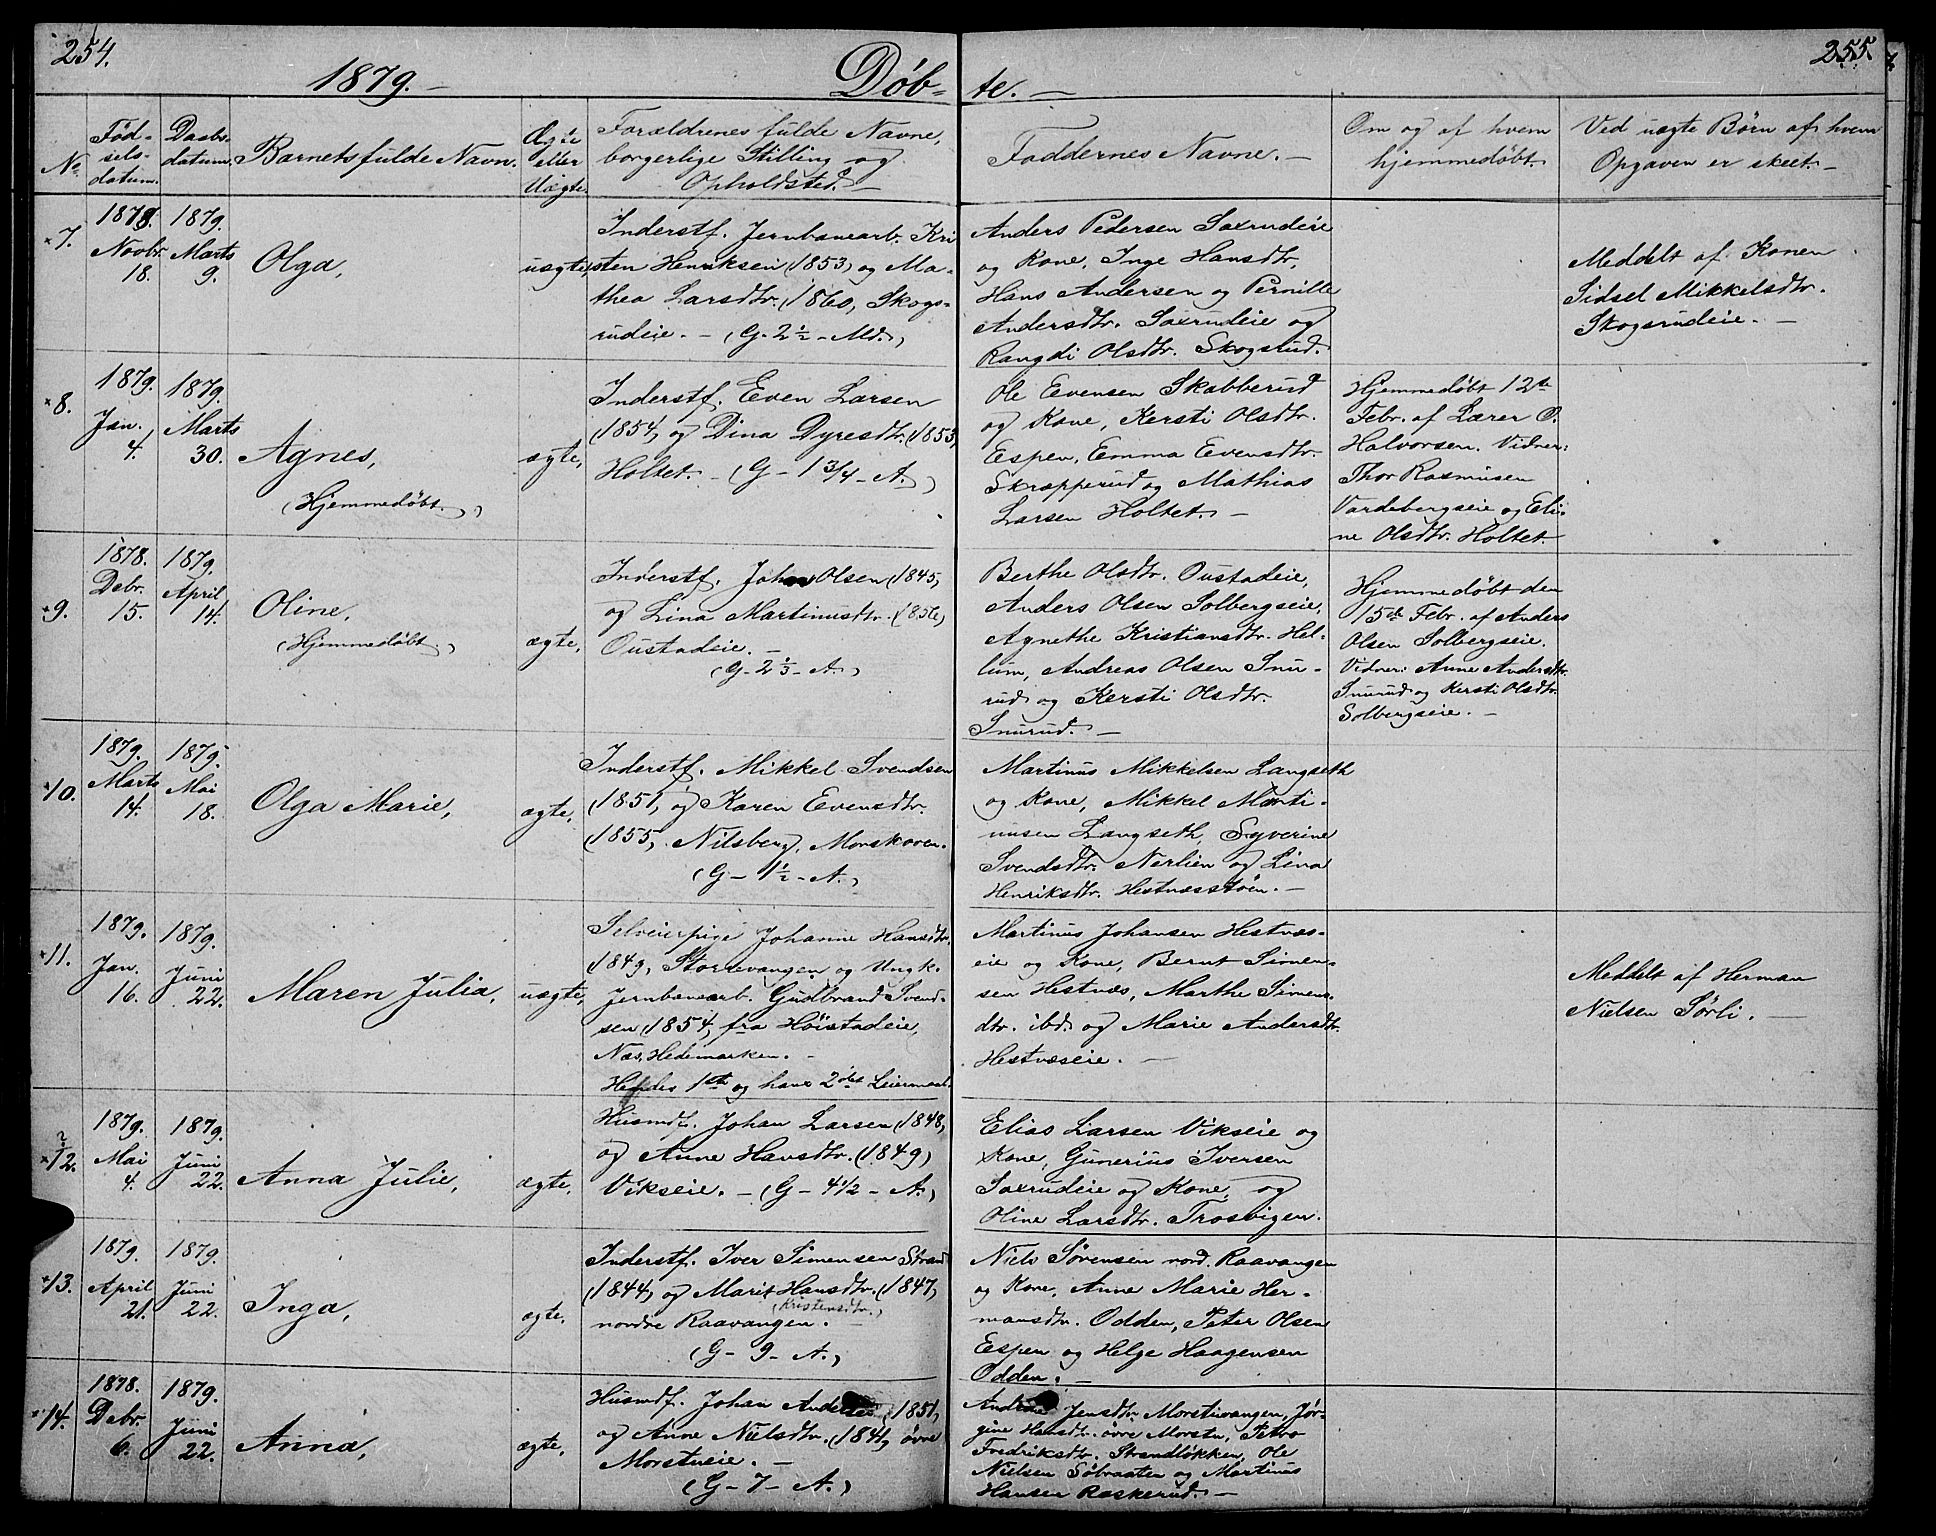 254.
1879. —
Døb-
te. —
255.
No
Fød-
sels-
datum.
Daabs-
datum.
Barnets fulde Navn.
Ægte
eller
Uægte.
Forældrenes fulde Navne,
borgerlige Stilling og
Opholdsted. —
Faddernes Navne. —
Om og af hvem
hjemmedøbt.
Ved uægte Børn af hvem
Opgaven er skeet. —
×7.
1878.
Novbr.
18.
1879.
Marts
9.
Olga,
uægte,
Inderstf. Jernbanearb. Kri
sten Henriksen (1853) og Ma-
thea Larsdtr. (1860, Skogs-
rudeie. — (G. 2½ - Md.)
Anders Pedersen Saxrudeie
og Kone, Inge Hansdtr,
Hans Andersen og Pernille
Andersdtr. Saxrudeie og
Rangdi Olsdtr. Skogsrud.
Meddelt af Konen
Sidsel Mikkelsdtr.
Skogsrudeie. —
×8.
1879.
Jan.
4.
1879.
Marts
30.
Agnes,
(Hjemmedøbt.)
ægte,
Inderstf. Even Larsen
(1854, og Dina Dyresdtr. (1853,
Holtet. — (G - 1 3/4 - A.)
Ole Evensen Skabberud
og Kone, Kersti Olsdtr.
Espen, Emma Evensdtr.
Skrapperud og Mathias
Larsen Holtet. —
Hjemmedøbt 12te
Febr. af Lærer O.
Halvorsen. Vidner:
Thor Rasmusen
Vardebergseie og Eli-
ne Olsdtr. Holtet.
×9.
1878.
Debr.
15.
1879.
April
14.
Oline,
(Hjemmedøbt.)
ægte,
Inderstf. Johan Olsen (1845,
og Lina Martinusdtr. (1856)
Oustadeie. —
(G - 2⅓ - A.)
Berthe Olsdtr. Oustadeie,
Anders Olsen Solbergseie,
Agnethe Kristiansdtr. Hel-
lum, Andreas Olsen Snu-
rud og Kersti Olsdtr.
Snurud. —
Hjemmedøbt den
15de Febr. af Anders
Olsen Solbergseie.
Vidner: Anne Andersdtr.
Snurud og Kersti Olsdtr.
Solbergseie. —
×10.
1879.
Marts
14.
1879.
Mai
18.
Olga Marie,
ægte,
Inderstf. Mikkel Svendsen
(1851, og Karen Evensdtr.
(1855, Nilsberg, Morskoven.
(G - 1½ - A.)
Martinus Mikkelsen Langseth
og Kone, Mikkel Marti-
nusen Langseth, Syverine
Svendsdtr. Nerlien og Lina
Henriksdtr. Hestnæsstøen. —
×11.
1879.
Jan.
16.
1879.
Juni
22.
Maren Julia,
uægte,
Selveierpige Johanne Hansdtr.
(1849, Storrevangen og Ungk.
Jernbanearb. Gudbrand Svend-
sen (1854, fra Höistadeie,
Næs, Hedemarken. —
Hendes 1ste og hans 2det Leiermaal.
Martinus Johansen Hestnæs-
eie og Kone, Bernt Simen-
sen Hestnæs, Marthe Simens-
dtr. ibd. og Marie Andersdtr.
Hestnæseie. —
Meddelt af Herman
Nielsen Sørli. —
×12.
1879.
Mai
4.
1879.
Juni
22.
Anna Julie,
ægte,
Husmdf. Johan Larsen (1848,
og Anne Hansdtr. (1849)
Vikseie. — (G - 4½ - A.)
Elias Larsen Vikseie og
Kone, Gunerius Iversen
Saxrudeie og Kone, og
Oline Larsdtr. Trosvigen.
×13.
1879.
April
21.
1879.
Juni
22.
Inga,
ægte,
Inderstf. Iver Simensen Strand
(1844, og Marit Hansdtr. (1847,
(Kristensdtr.)
nordre Raavangen. —
(G - 9 - A.)
Niels Sørensen nord. Raavangen
og Kone, Anne Marie Her-
mansdtr. Odden, Peter Olsen
Espen og Helge Haagensen
Odden. —
×14.
1878.
Debr.
6.
1879.
Juni
22.
Anna,
ægte,
Husmdf. Johan Andersen (1851,
og Anne Nielsdtr. (1841, øvre
Morstueie. —
(G - 7 - A.)
Jensdtr. Morstuvangen, Jør-
gine Hansdtr. øvre Morstu, Petra
Fredriksdtr. Strandløkken, Ole
Nielsen Søbraaten og Martinus
Hansen Raskerud. —